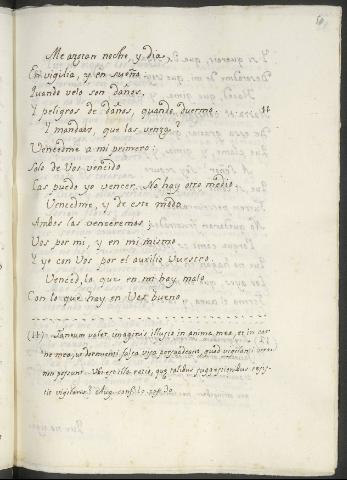 Me agitan noche, y dia,
En vigilia, y en sueño:
Quando velo son daños,
Y peligros de daños, quando duermo. 11
Y mandais, que las venza?
Vencedme a mi primero:
Solo de Vos vencido
Las puedo yo vencer. No hay otro medio.
Vencedme, y de este modo
Ambos las venceremos:
Vos por mi, y en mi mismo
Y yo con Vos por el auxilio vuestro.
Venced, lo que en mi hay malo
Con lo que hay en Vos bueno
(11) Tantum valet imaginis illusio in anima mea, et in car
ne mea, ut dormienti falsa visa persuadeant, quod vigilanti vera
non possunt. Ubi est illa ratio, qua talibus suggestionibus resis
tit vigilans? Aug. conf. lo. cap. 30.